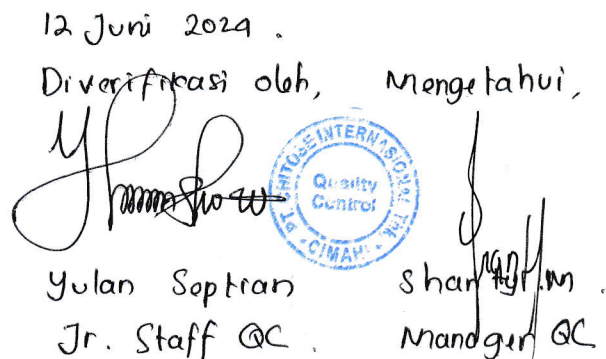 12 Juni 2024.
Diverifikasi oleh, Mengetahui,
PT CHITOSE INTERNASIONAL TBK
Quality
Control
CIMAHI
Yulan Septian
Jr. Staff QC. Manager QC